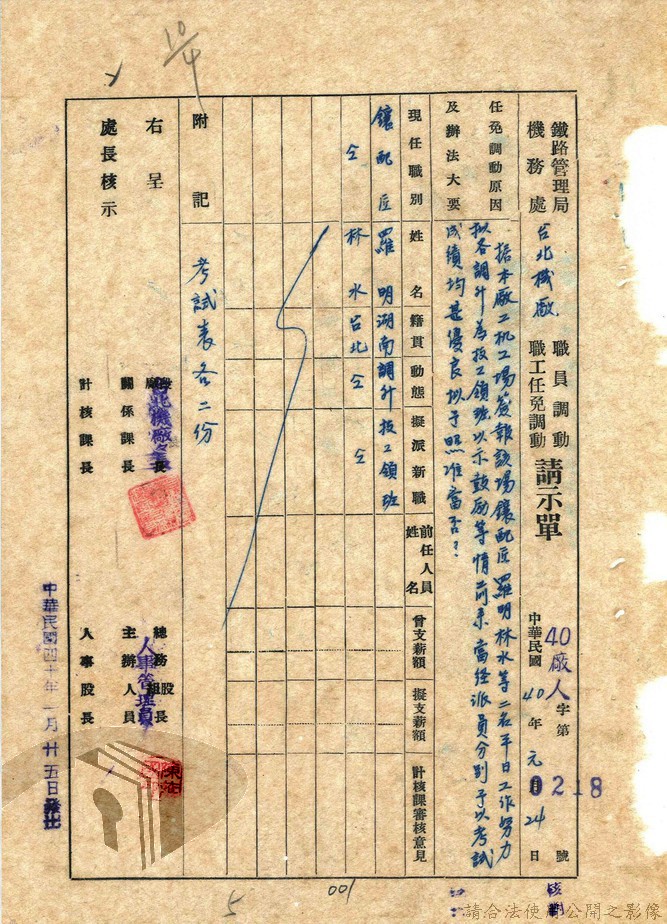 鐵路管理局
機務處
台北機廠
職員調動
職工任免調動
請示單
中華民國40年元月24日
40廠人字第0218號
任免調動原因
及辦法大要
據本廠工机工場簽報該場鑲配匠羅明林水等二名平日工作努力
拟各調升為技工領班以示鼓励等情前來當經派員分別予以考試
成績均甚優良拟予照准當否？
現任職別 姓名 籍貫 動態 擬派新職 前任人員姓名 曾支薪額 擬支薪額 計核課審核意見
鑲配匠 羅明 湖南 調升 技工領班
仝 林水 台北 仝 仝
附記
考試表各二份
右呈
處長核示
台北機廠
關係課長
計核課長
總務股長
人事管理員
主辦人員
人事股長
中華民國四十年一月廿五日發出
10/4
5
001
請合法使用公開之影像